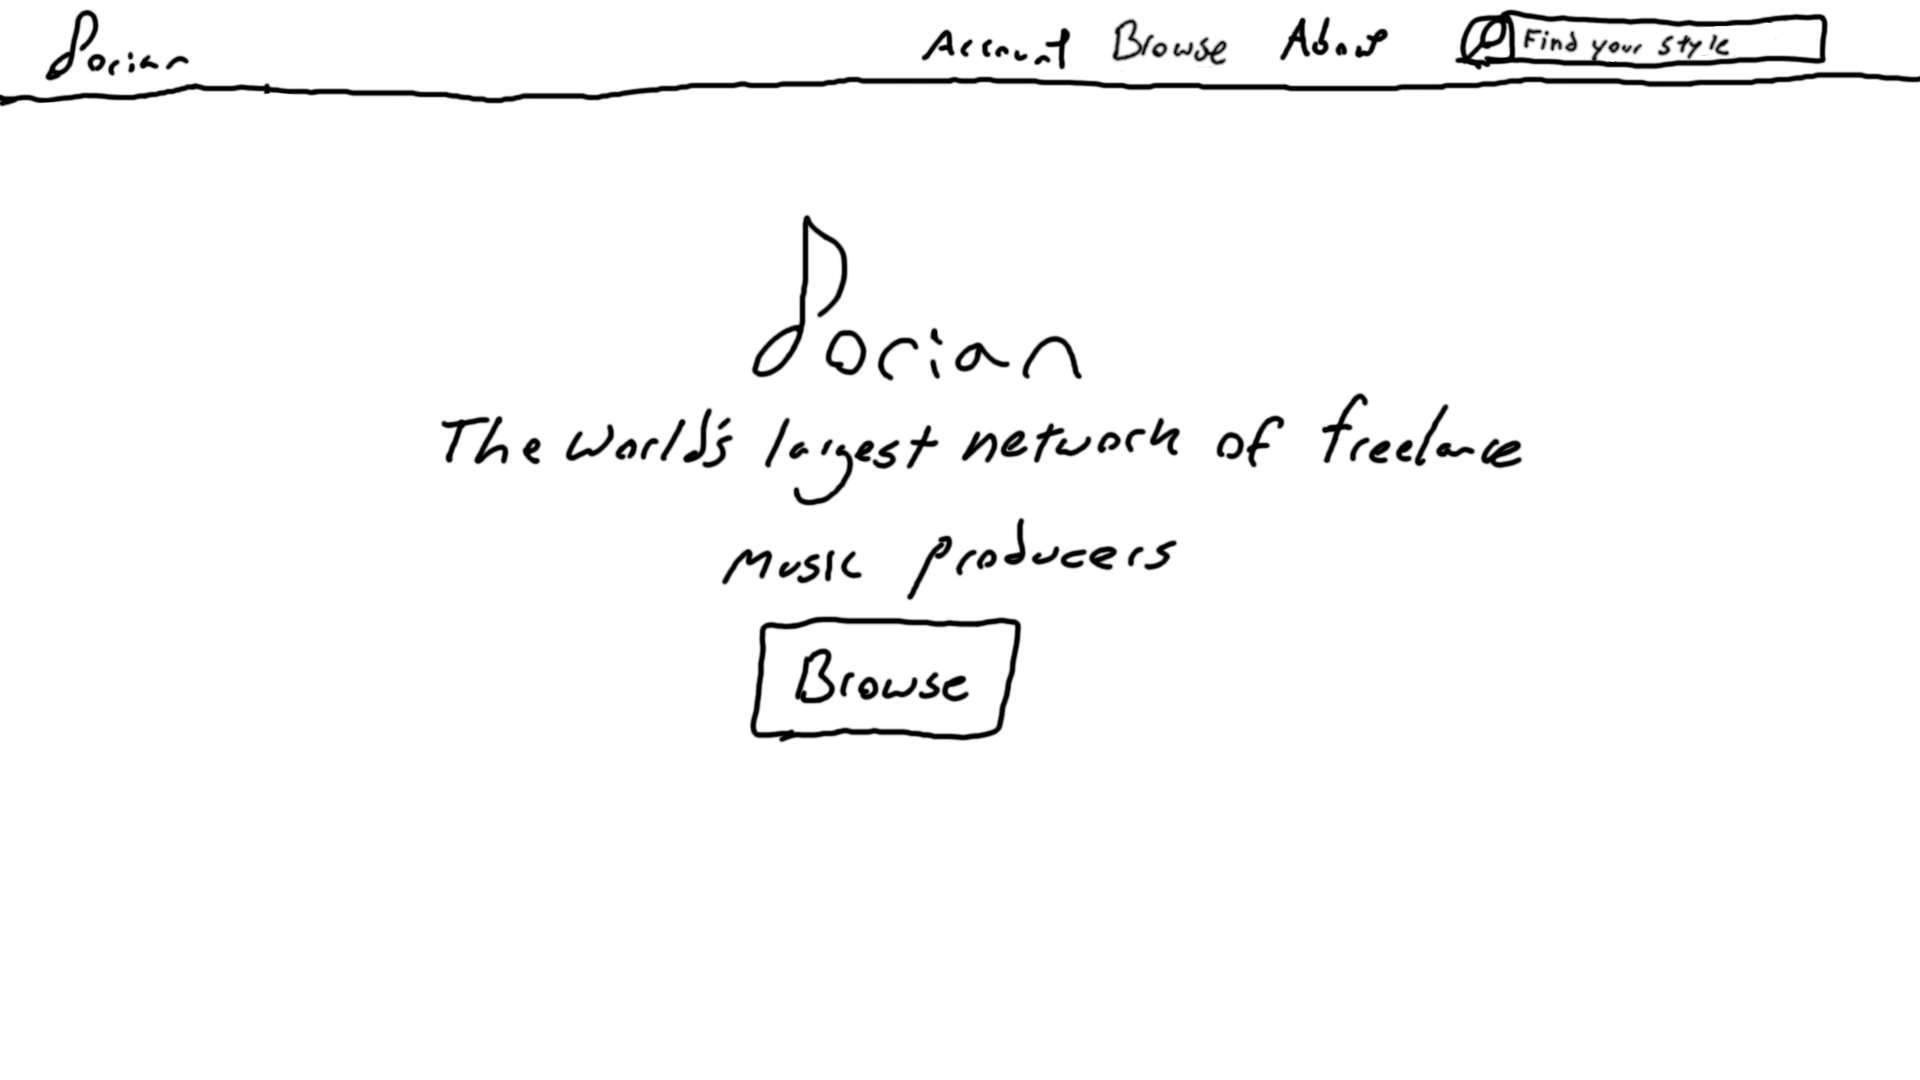 Dorian
Account Browse About Find your style
Dorian
The world's largest network of freelance
music producers
Browse